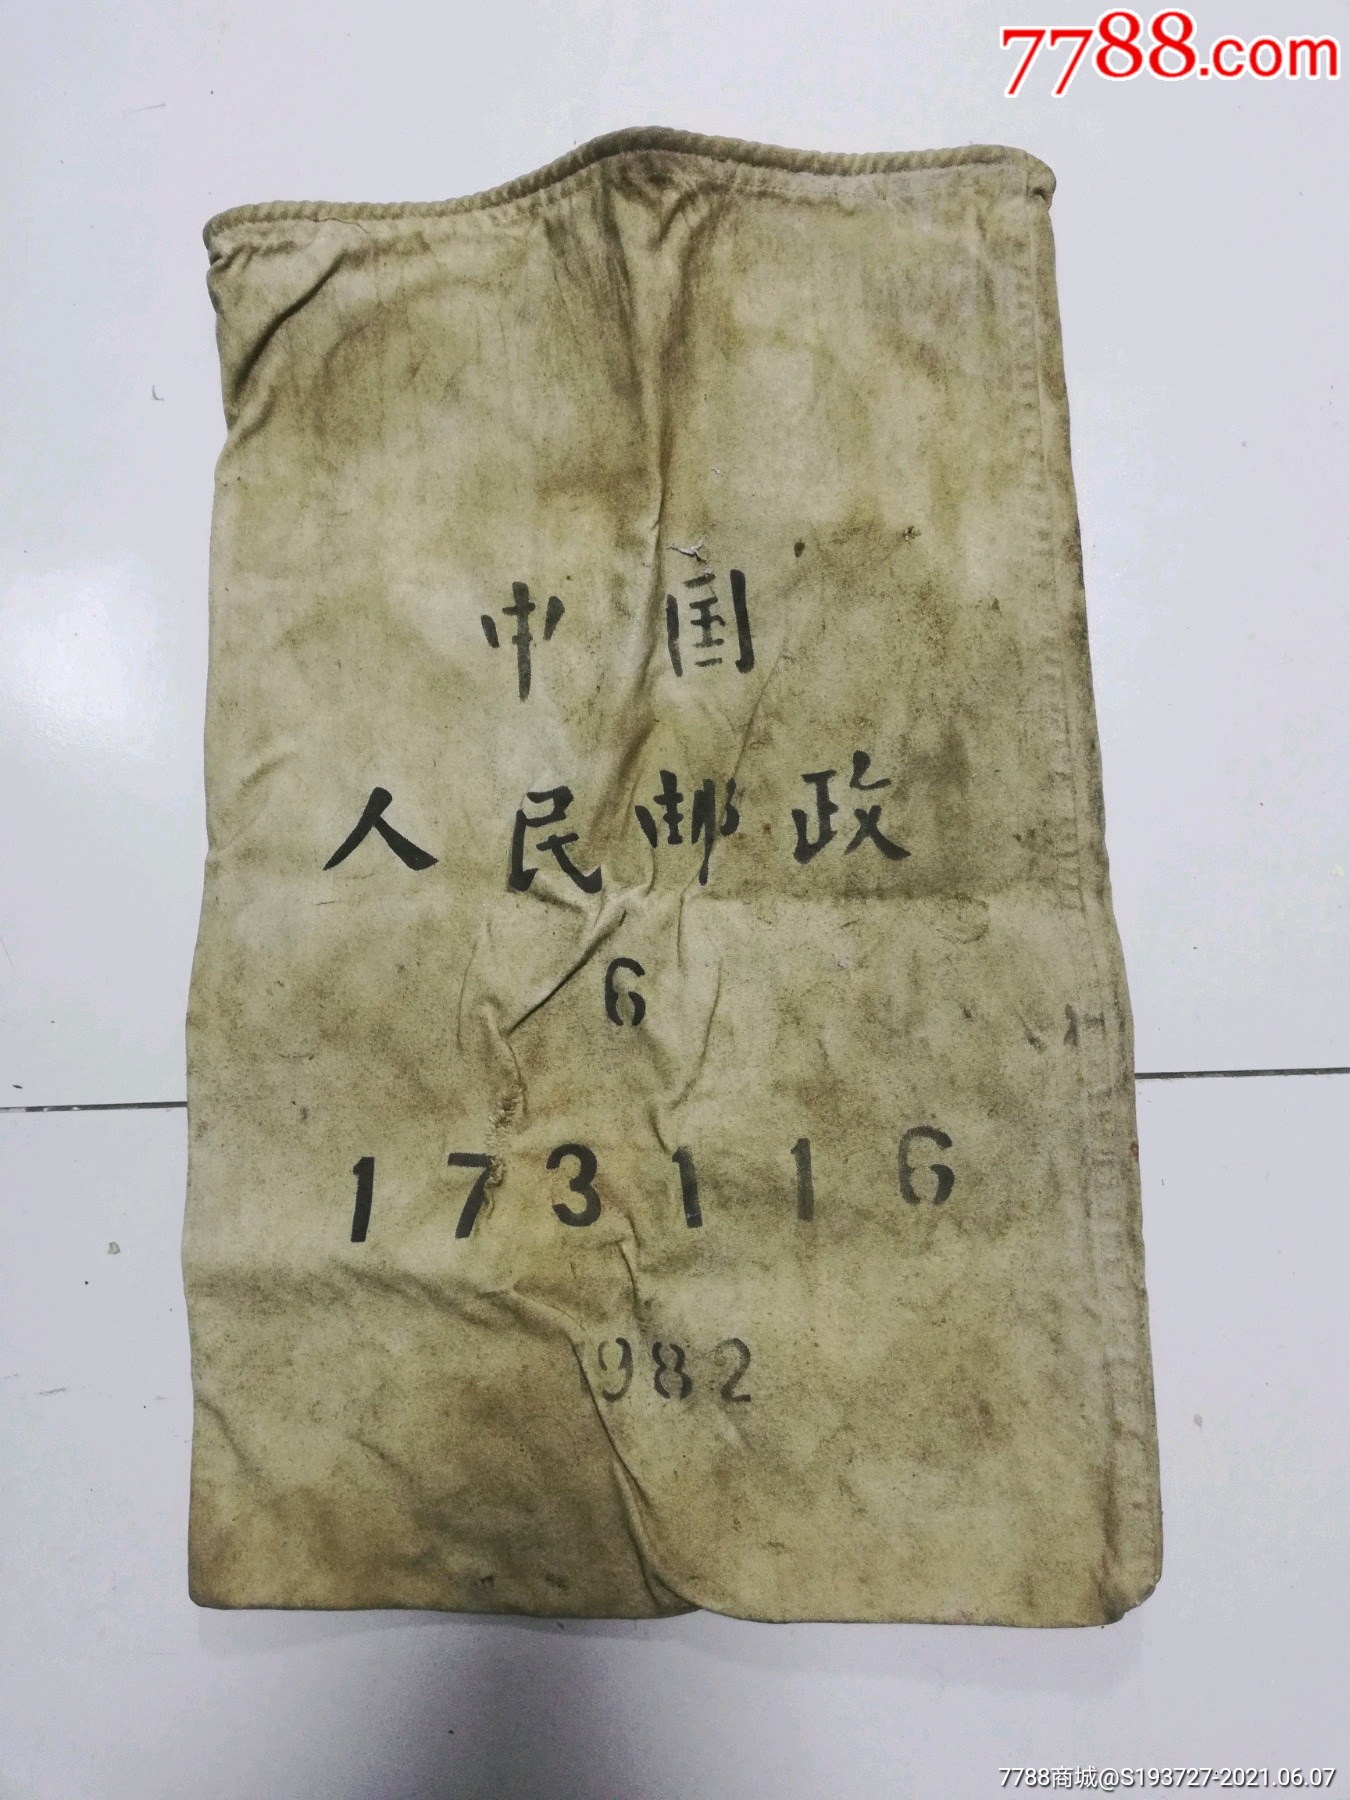 7788.com
中国
人民邮政
6
173116
1982
7788商城@S193727-2021.06.07